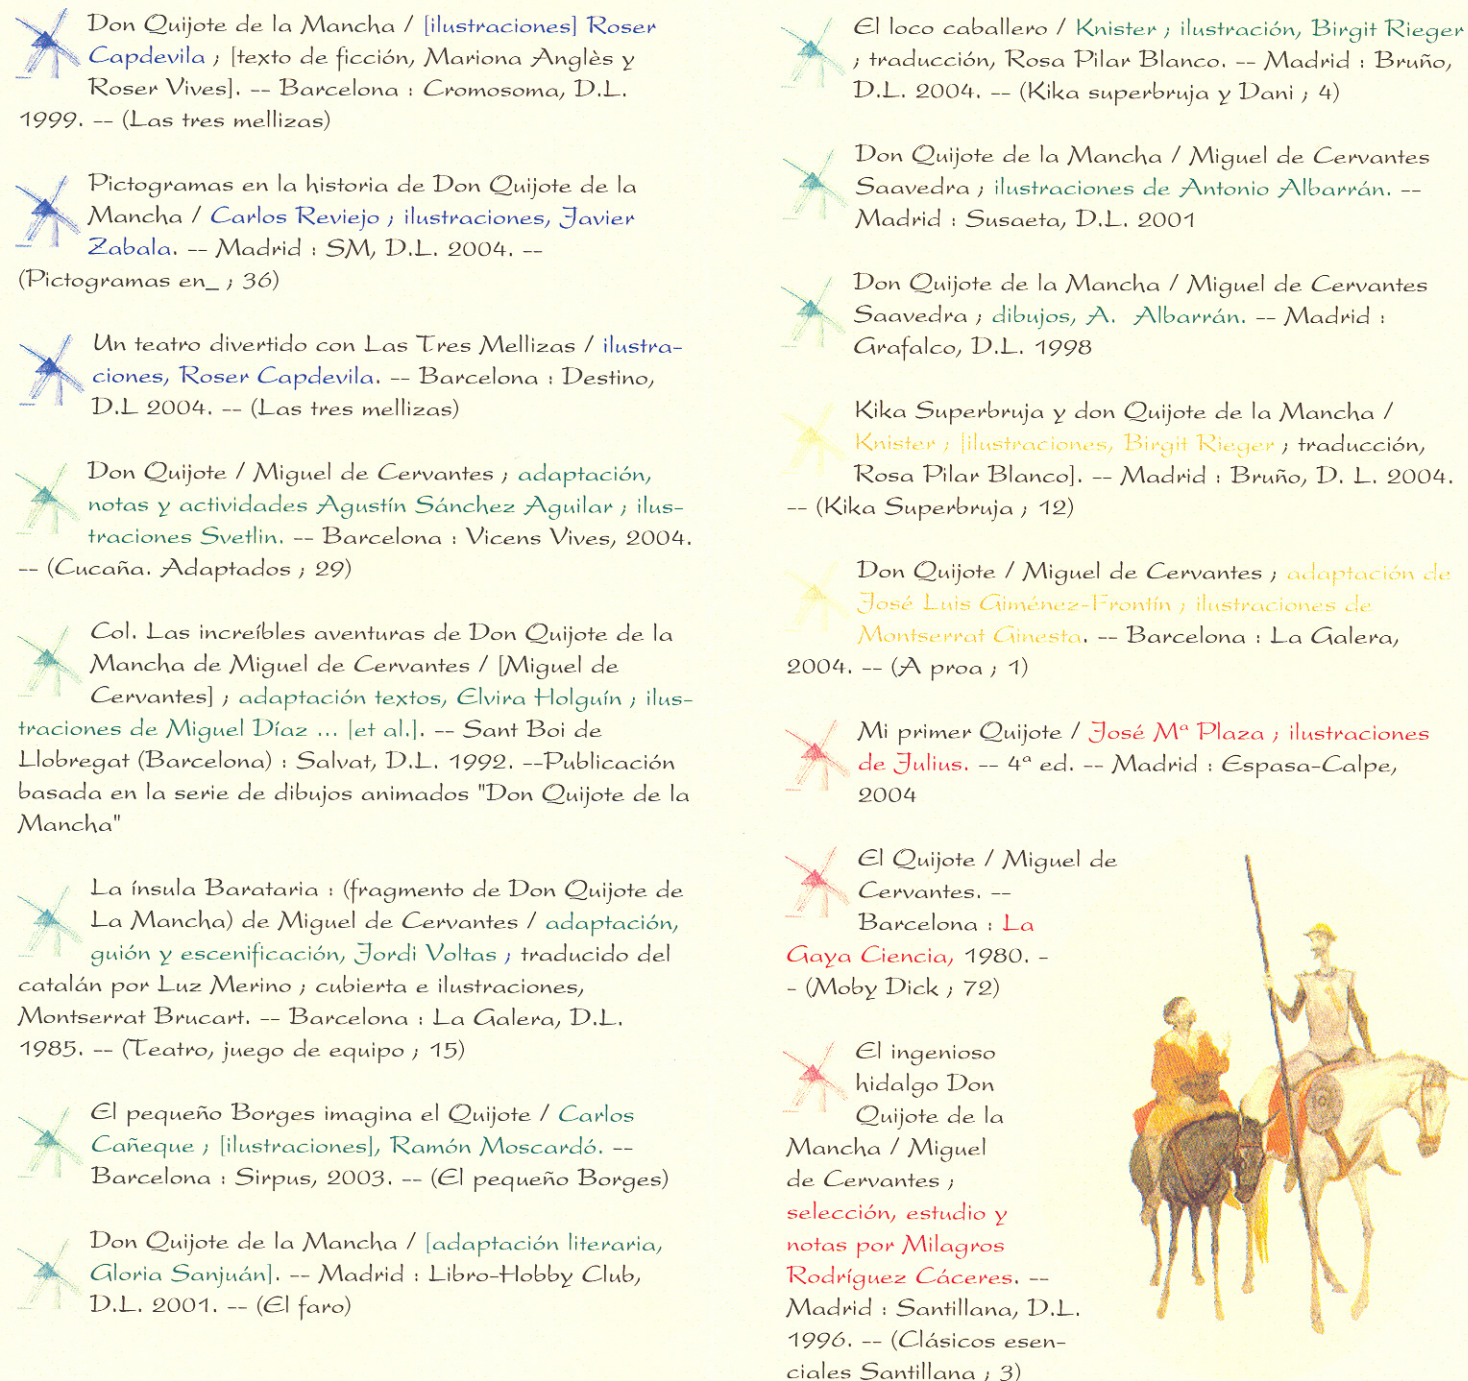 Don Quijote de la Mancha / [ilustraciones] Roser
Capdevila ; [texto de ficción, Mariona Anglès y
Roser Vives]. -- Barcelona : Cromosoma, D.L.
1999. -- (Las tres mellizas)
Pictogramas en la historia de Don Quijote de la
Mancha / Carlos Reviejo ; ilustraciones, Javier
Zabala. -- Madrid : SM, D.L. 2004. --
(Pictogramas en_ ; 36)
Un teatro divertido con Las Tres Mellizas / ilustra-
ciones, Roser Capdevila. -- Barcelona : Destino,
D.L 2004. -- (Las tres mellizas)
Don Quijote / Miguel de Cervantes ; adaptación,
notas y actividades Agustín Sánchez Aguilar ; ilus-
traciones Svetlin. -- Barcelona : Vicens Vives, 2004.
-- (Cucaña. Adaptados ; 29)
Col. Las increíbles aventuras de Don Quijote de la
Mancha de Miguel de Cervantes / [Miguel de
Cervantes] ; adaptación textos, Elvira Holguín ; ilus-
traciones de Miguel Díaz ... [et al.]. -- Sant Boi de
Llobregat (Barcelona) : Salvat, D.L. 1992. --Publicación
basada en la serie de dibujos animados "Don Quijote de la
Mancha"
La ínsula Barataria : (fragmento de Don Quijote de
La Mancha) de Miguel de Cervantes / adaptación,
guión y escenificación, Jordi Voltas ; traducido del
catalán por Luz Merino ; cubierta e ilustraciones,
Montserrat Brucart. -- Barcelona : La Galera, D.L.
1985. -- (Teatro, juego de equipo ; 15)
El pequeño Borges imagina el Quijote / Carlos
Cañeque ; [ilustraciones], Ramón Moscardó. --
Barcelona : Sirpus, 2003. -- (El pequeño Borges)
Don Quijote de la Mancha / [adaptación literaria,
Gloria Sanjuán]. -- Madrid : Libro-Hobby Club,
D.L. 2001. -- (El faro)
El loco caballero / Knister ; ilustración, Birgit Rieger
; traducción, Rosa Pilar Blanco. -- Madrid : Bruño,
D.L. 2004. -- (Kika superbruja y Dani ; 4)
Don Quijote de la Mancha / Miguel de Cervantes
Saavedra ; ilustraciones de Antonio Albarrán. --
Madrid : Susaeta, D.L. 2001
Don Quijote de la Mancha / Miguel de Cervantes
Saavedra ; dibujos, A. Albarrán. -- Madrid :
Grafalco, D.L. 1998
Kika Superbruja y don Quijote de la Mancha /
Knister ; [ilustraciones, Birgit Rieger ; traducción,
Rosa Pilar Blanco]. -- Madrid : Bruño, D. L. 2004.
-- (Kika Superbruja ; 12)
Don Quijote / Miguel de Cervantes ; adaptación de
José Luis Giménez-Frontín ; ilustraciones de
Montserrat Ginesta. -- Barcelona : La Galera,
2004. -- (A proa ; 1)
Mi primer Quijote / José Mª Plaza ; ilustraciones
de Julius. -- 4ª ed. -- Madrid : Espasa-Calpe,
2004
El Quijote / Miguel de
Cervantes. --
Barcelona : La
Gaya Ciencia, 1980. -
- (Moby Dick ; 72)
El ingenioso
hidalgo Don
Quijote de la
Mancha / Miguel
de Cervantes ;
selección, estudio y
notas por Milagros
Rodríguez Cáceres. --
Madrid : Santillana, D.L.
1996. -- (Clásicos esen-
ciales Santillana ; 3)